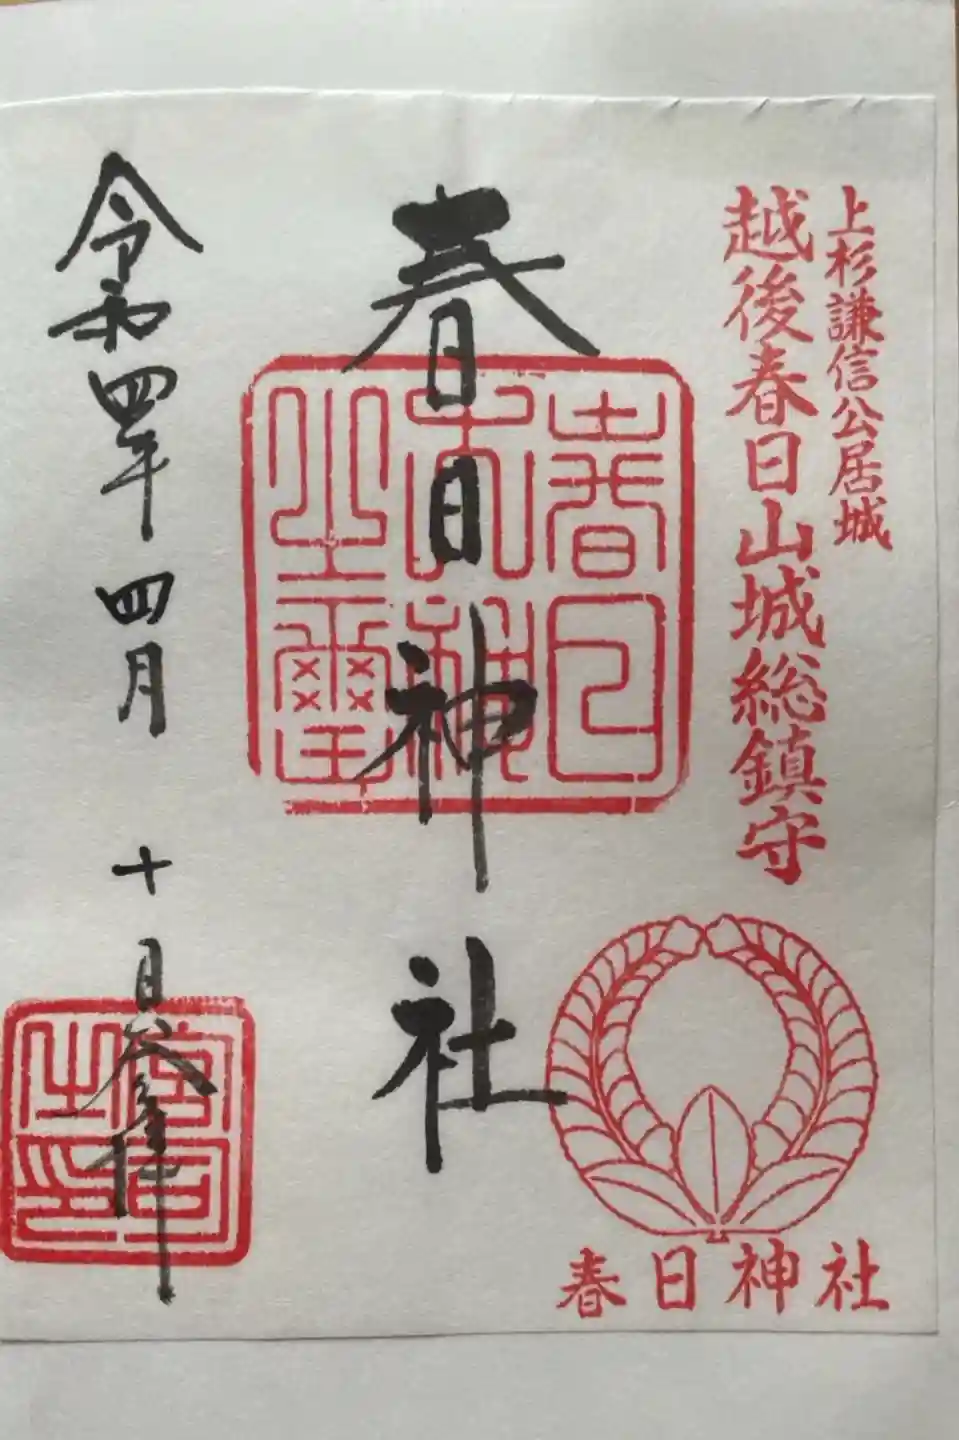 上杉謙信公居城
越後春日山城総鎮守
春日神社
春日神社
春日大神之璽
令和四年四月十日参拝
宮司之印